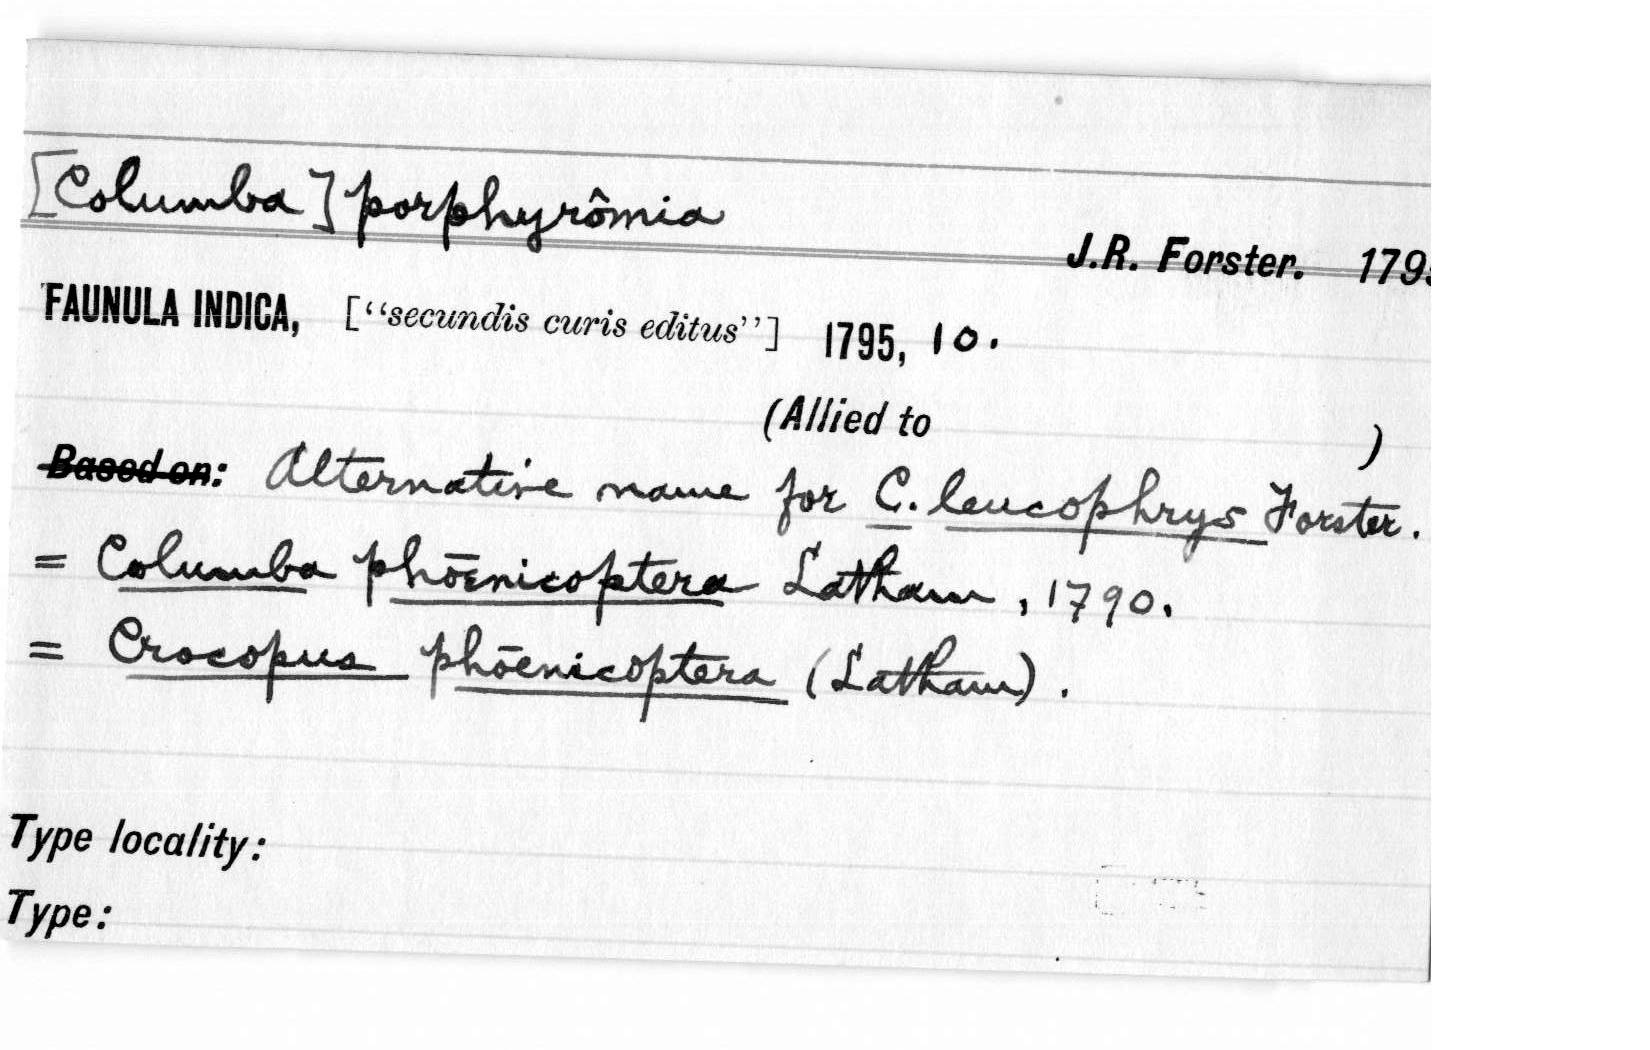 [Columba] porphyrômia
J.R. Forster. 179
FAUNULA INDICA, ["secundis curis editus"] 1795, 10.
(Allied to )
Based on: Alternative name for C. leucophrys Forster.
= Columba phōenicoptera Latham, 1790.
= Crocopus phōenicoptera (Latham).
Type locality:
Type: